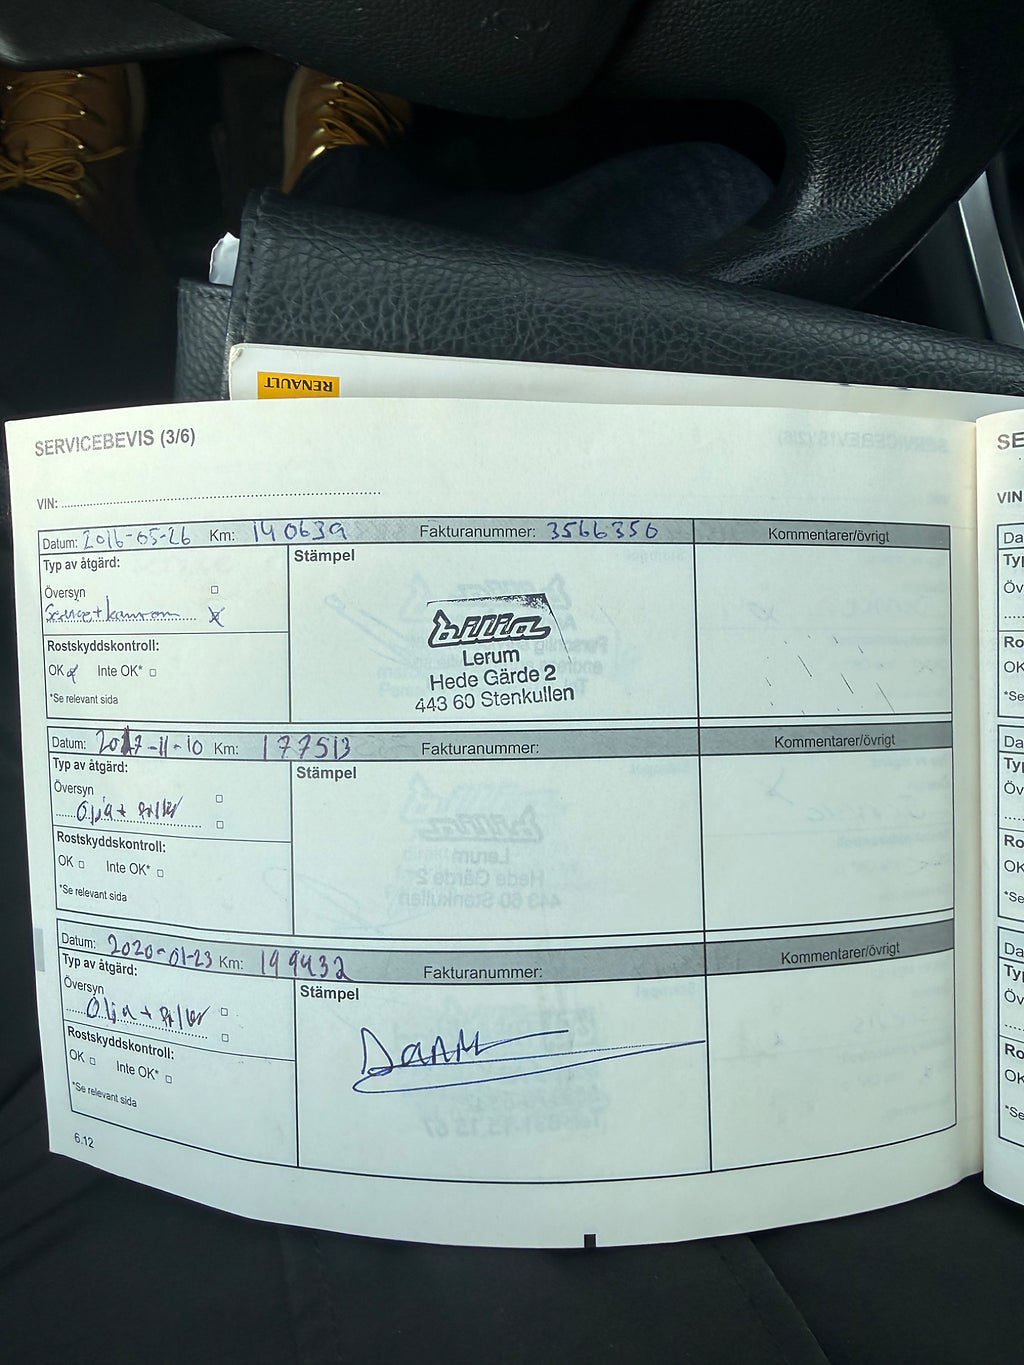 RENAULT
SERVICEBEVIS (3/6)
VIN:
Datum: 2016-05-26 Km: 140639 Fakturanummer: 3566356 Kommentarer/övrigt
Typ av åtgärd:
Stämpel
Översyn
Service+kamrem
Rostskyddskontroll:
OK Inte OK*
*Se relevant sida
bilia
Lerum
Hede Gärde 2
443 60 Stenkullen
Datum: 2017-11-10 Km: 177513 Fakturanummer: Kommentarer/övrigt
Typ av åtgärd:
Stämpel
Översyn
Olja + filter
Rostskyddskontroll:
OK Inte OK*
*Se relevant sida
Datum: 2020-01-23 Km: 199432 Fakturanummer: Kommentarer/övrigt
Typ av åtgärd:
Stämpel
Översyn
Olja + filter
Rostskyddskontroll:
OK Inte OK*
*Se relevant sida
6.12
SE
VIN
Da
Typ
Öv
Ro
OK
*Se
Da
Typ
Öv
Ro
OK
*Se
Da
Typ
Öv
Ro
OK
*Se